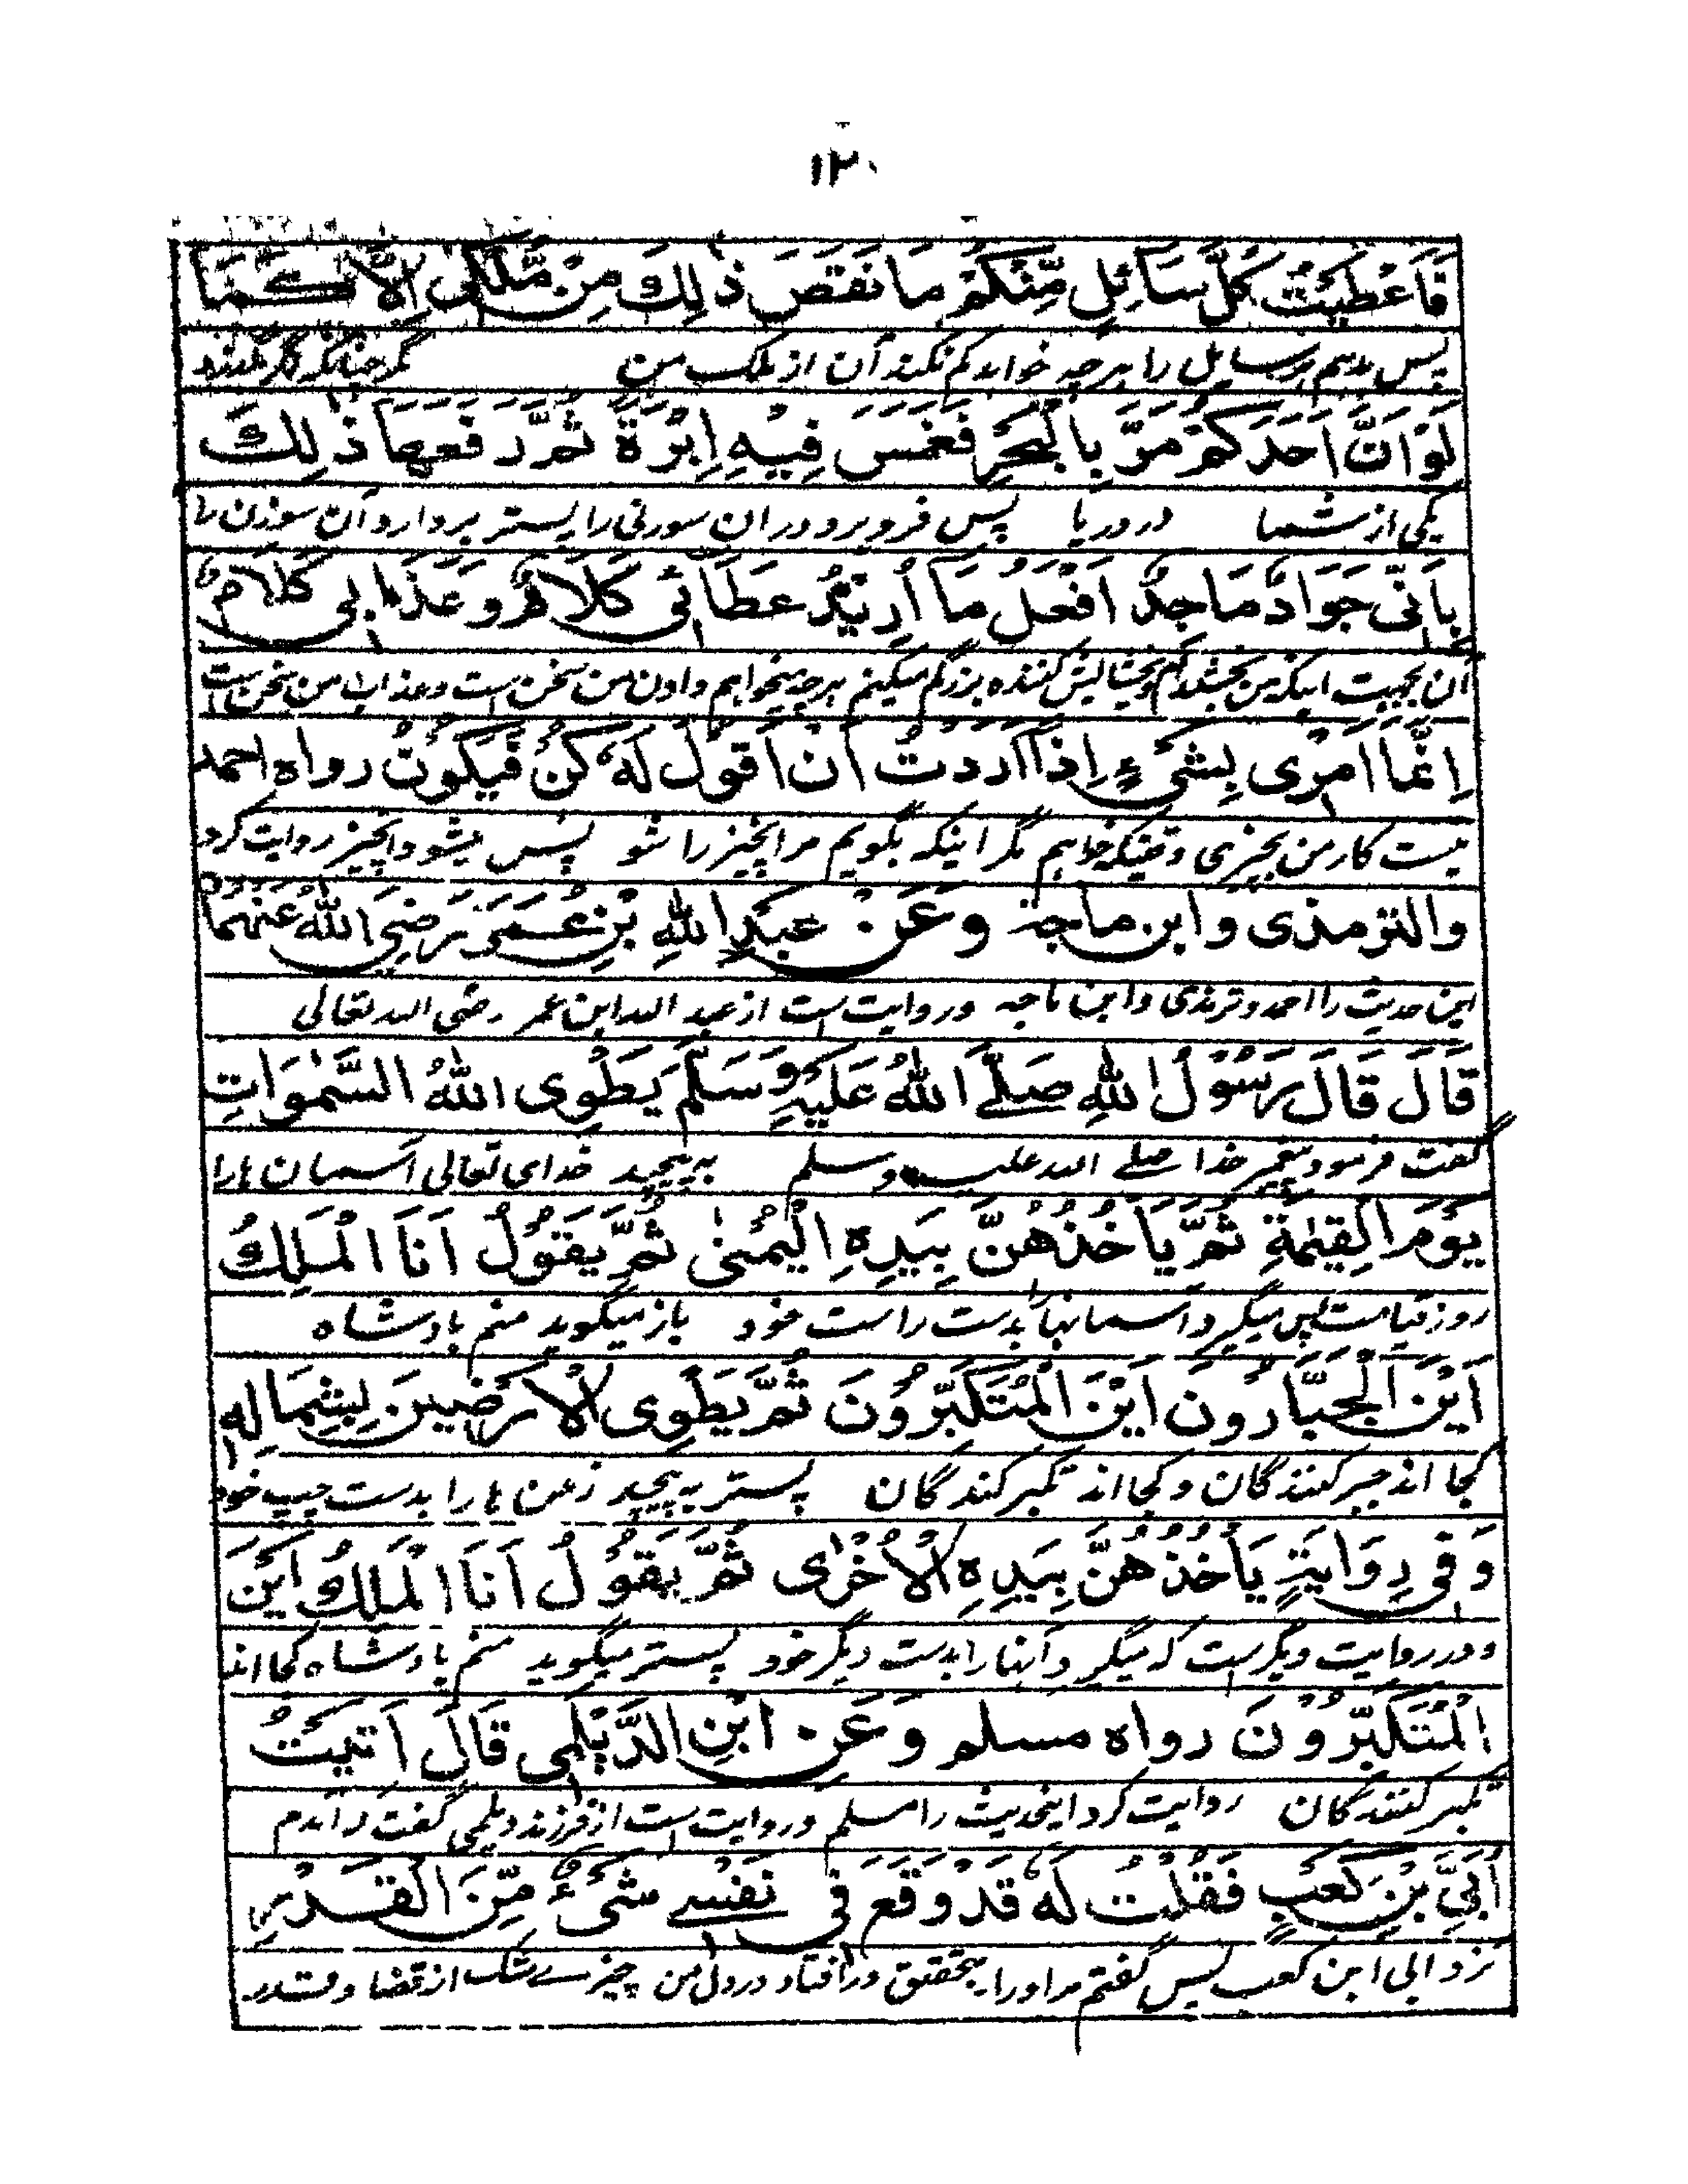 ۱۲۰
فَاَعْطَيْتُ كُلَّ سَائِلٍ مِّنْكُمْ مَا نَقَصَ ذٰلِكَ مِنْ مُّلْكِى اِلَّا كَمَا
پس بدهم هر سایل را هرچه خواهد کم نکند آن از ملک من مگر چنانکه اگر بگذرد
لَوْ اَنَّ اَحَدَكُمْ مَرَّ بِالْبَحْرِ فَغَمَسَ فِيْهِ اِبْرَةً ثُمَّ رَفَعَهَا ذٰلِكَ
یکی از شما در دریا پس فرو برد در ان سوزنی را پستر بردارد آن سوزن را
بِاَنِّى جَوَادٌ مَاجِدٌ اَفْعَلُ مَا اُرِيْدُ عَطَائِى كَلَامٌ وَعَذَابِى كَلَامٌ
آن بجهت اینکه من بخشنده‌ام و بخشایش کننده بزرگم میکنم هرچه میخواهم دادن من سخن است و عذاب من سخن است
اِنَّمَا اَمْرِى بِشَىْءٍ اِذَا اَرَدْتُ اَنْ اَقُوْلَ لَهٗ كُنْ فَيَكُوْنُ رواه احمد
نیست کار من بچیزی وقتیکه خواهم مگر اینکه بگویم مر آنچیز را شو پس میشود آنچیز روایت کرد
والترمذى وابن ماجة وَعَنْ عَبْدِ اللهِ بْنِ عُمَرَ رَضِىَ اللهُ عَنْهُمَا
این حدیث را احمد و ترمذی و ابن ماجه و روایت است از عبد الله ابن عمر رضی الله تعالی
قَالَ قَالَ رَسُوْلُ اللهِ صَلَّے اللهُ عَلَيْهِ وَسَلَّمَ يَطْوِى اللهُ السَّمٰوَاتِ
گفت فرمود پیغمبر خدا صلے الله علیه وسلم به پیچید خدای تعالی آسمان ها را
يَوْمَ الْقِيٰمَةِ ثُمَّ يَأْخُذُهُنَّ بِيَدِهِ الْيُمْنٰى ثُمَّ يَقُوْلُ اَنَا الْمَلِكُ
روز قیامت پس میگیرد آسمانها بدست راست خود باز میگوید منم بادشاه
اَيْنَ الْجَبَّارُوْنَ اَيْنَ الْمُتَكَبِّرُوْنَ ثُمَّ يَطْوِى الْاَرَضِيْنَ بِشِمَالِهٖ
کجا اند جبر کنندگان و کجا اند تکبر کنندگان پستر به پیچید زمین ها را بدست چپ خود
وَفِى رِوَايَةٍ يَأْخُذُهُنَّ بِيَدِهِ الْاُخْرٰى ثُمَّ يَقُوْلُ اَنَا الْمَلِكُ اَيْنَ
و در روایت دیگر است که میگیرد آنها را بدست دیگر خود پستر میگوید منم بادشاه کجا اند
الْمُتَكَبِّرُوْنَ رواه مسلم وَعَنْ ابْنِ الدَّيْلَمِى قَالَ اَتَيْتُ
تکبر کنندگان روایت کرد اینحدیث را مسلم و روایت است از فرزند دیلمی گفت در آمدم
اُبَىَّ بْنَ كَعْبٍ فَقُلْتُ لَهٗ قَدْ وَقَعَ فِى نَفْسِے شَىْءٌ مِّنَ الْقَدْرِ
نزد ابی ابن کعب پس گفتم مر او را بتحقیق در افتاد در دل من چیزے شک از قضا و قدر